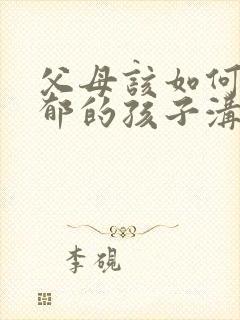 父母該如何
郁的孩子溝
李硯